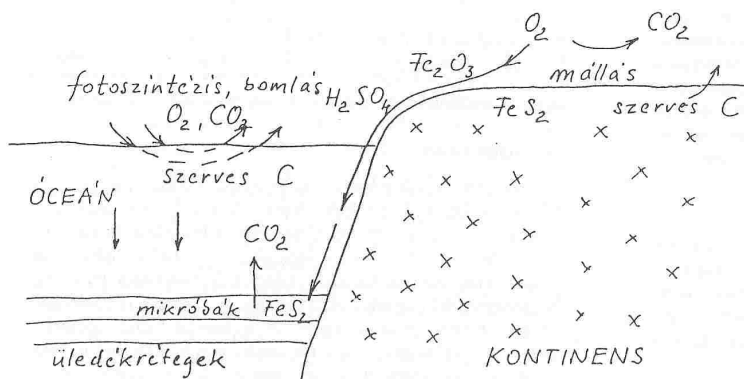 O₂ CO₂
Fe₂O₃ mállás
fotoszintézis, bomlás H₂SO₄ FeS₂ szerves C
O₂, CO₂
szerves C
ÓCEÁN
CO₂
mikróbák FeS₂
üledékrétegek
KONTINENS